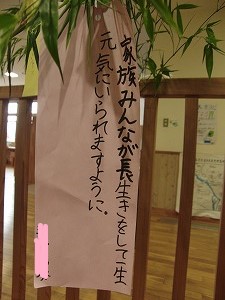 家族みんなが長生きをして一生
元気でいられますように。